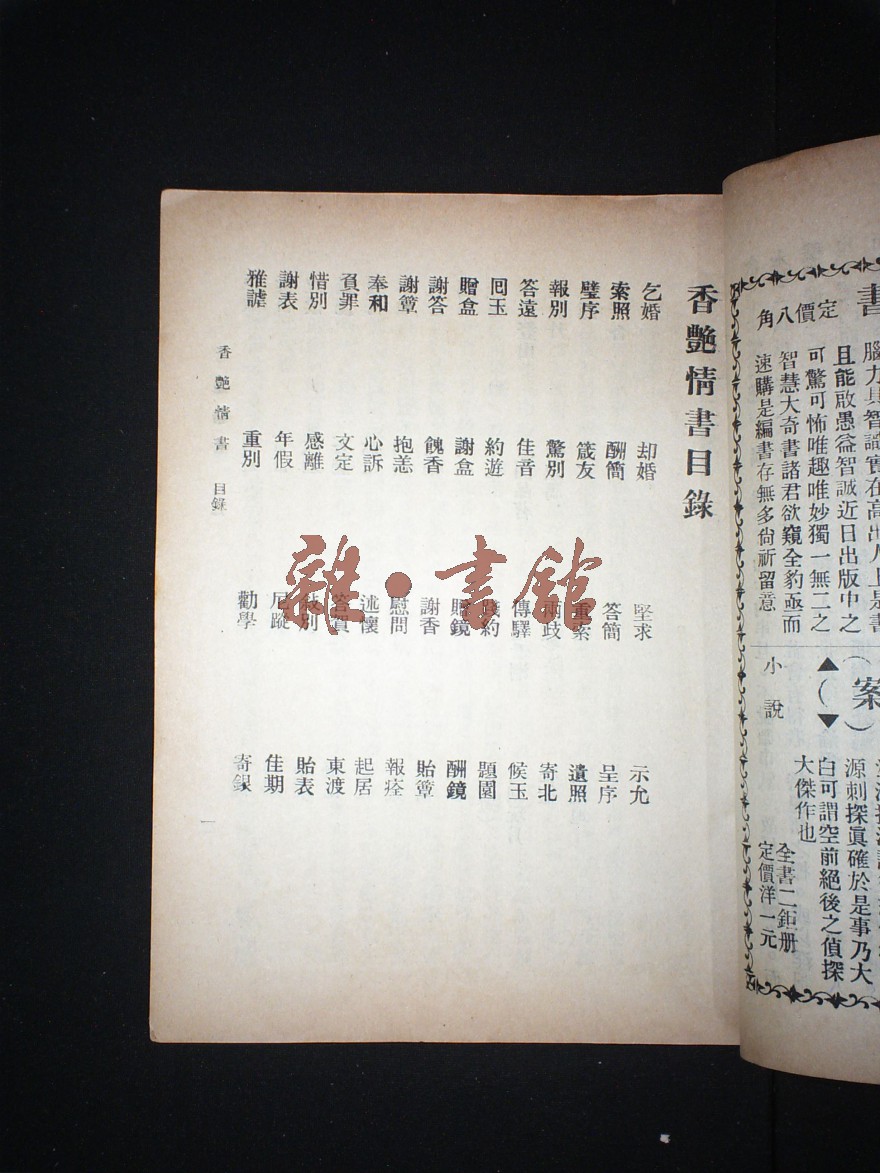 書
定價八角
腦力具智識實在高出人上是書
且能啟愚益智誠近日出版中之
可驚可怖唯趣唯妙獨一無二之
智慧大奇書諸君欲窺全豹亟而
速購是編書存無多尙祈留意
案
小說
源刺探眞確於是事乃大
白可謂空前絕後之偵探
大傑作也
全書二鉅册
定價洋一元
香艷情書目錄
乞婚 却婚 堅求 示允
索照 酬簡 答簡 呈序
璧序 箴友 重索 遺照
報別 驚別 兩歧 寄北
答遠 佳音 傳驛 候玉
囘玉 約遊 踐約 題園
贈盒 謝盒 贈鏡 酬鏡
謝答 餽香 謝香 貽簟
謝簟 抱恙 慰問 報痊
奉和 心訴 述懷 起居
負罪 文定 答賀 東渡
惜別 感離 敍別 貽表
謝表 年假 尼蹤 佳期
雅謔 重別 勸學 寄銀
香艷情書 目錄 一
雜·書館